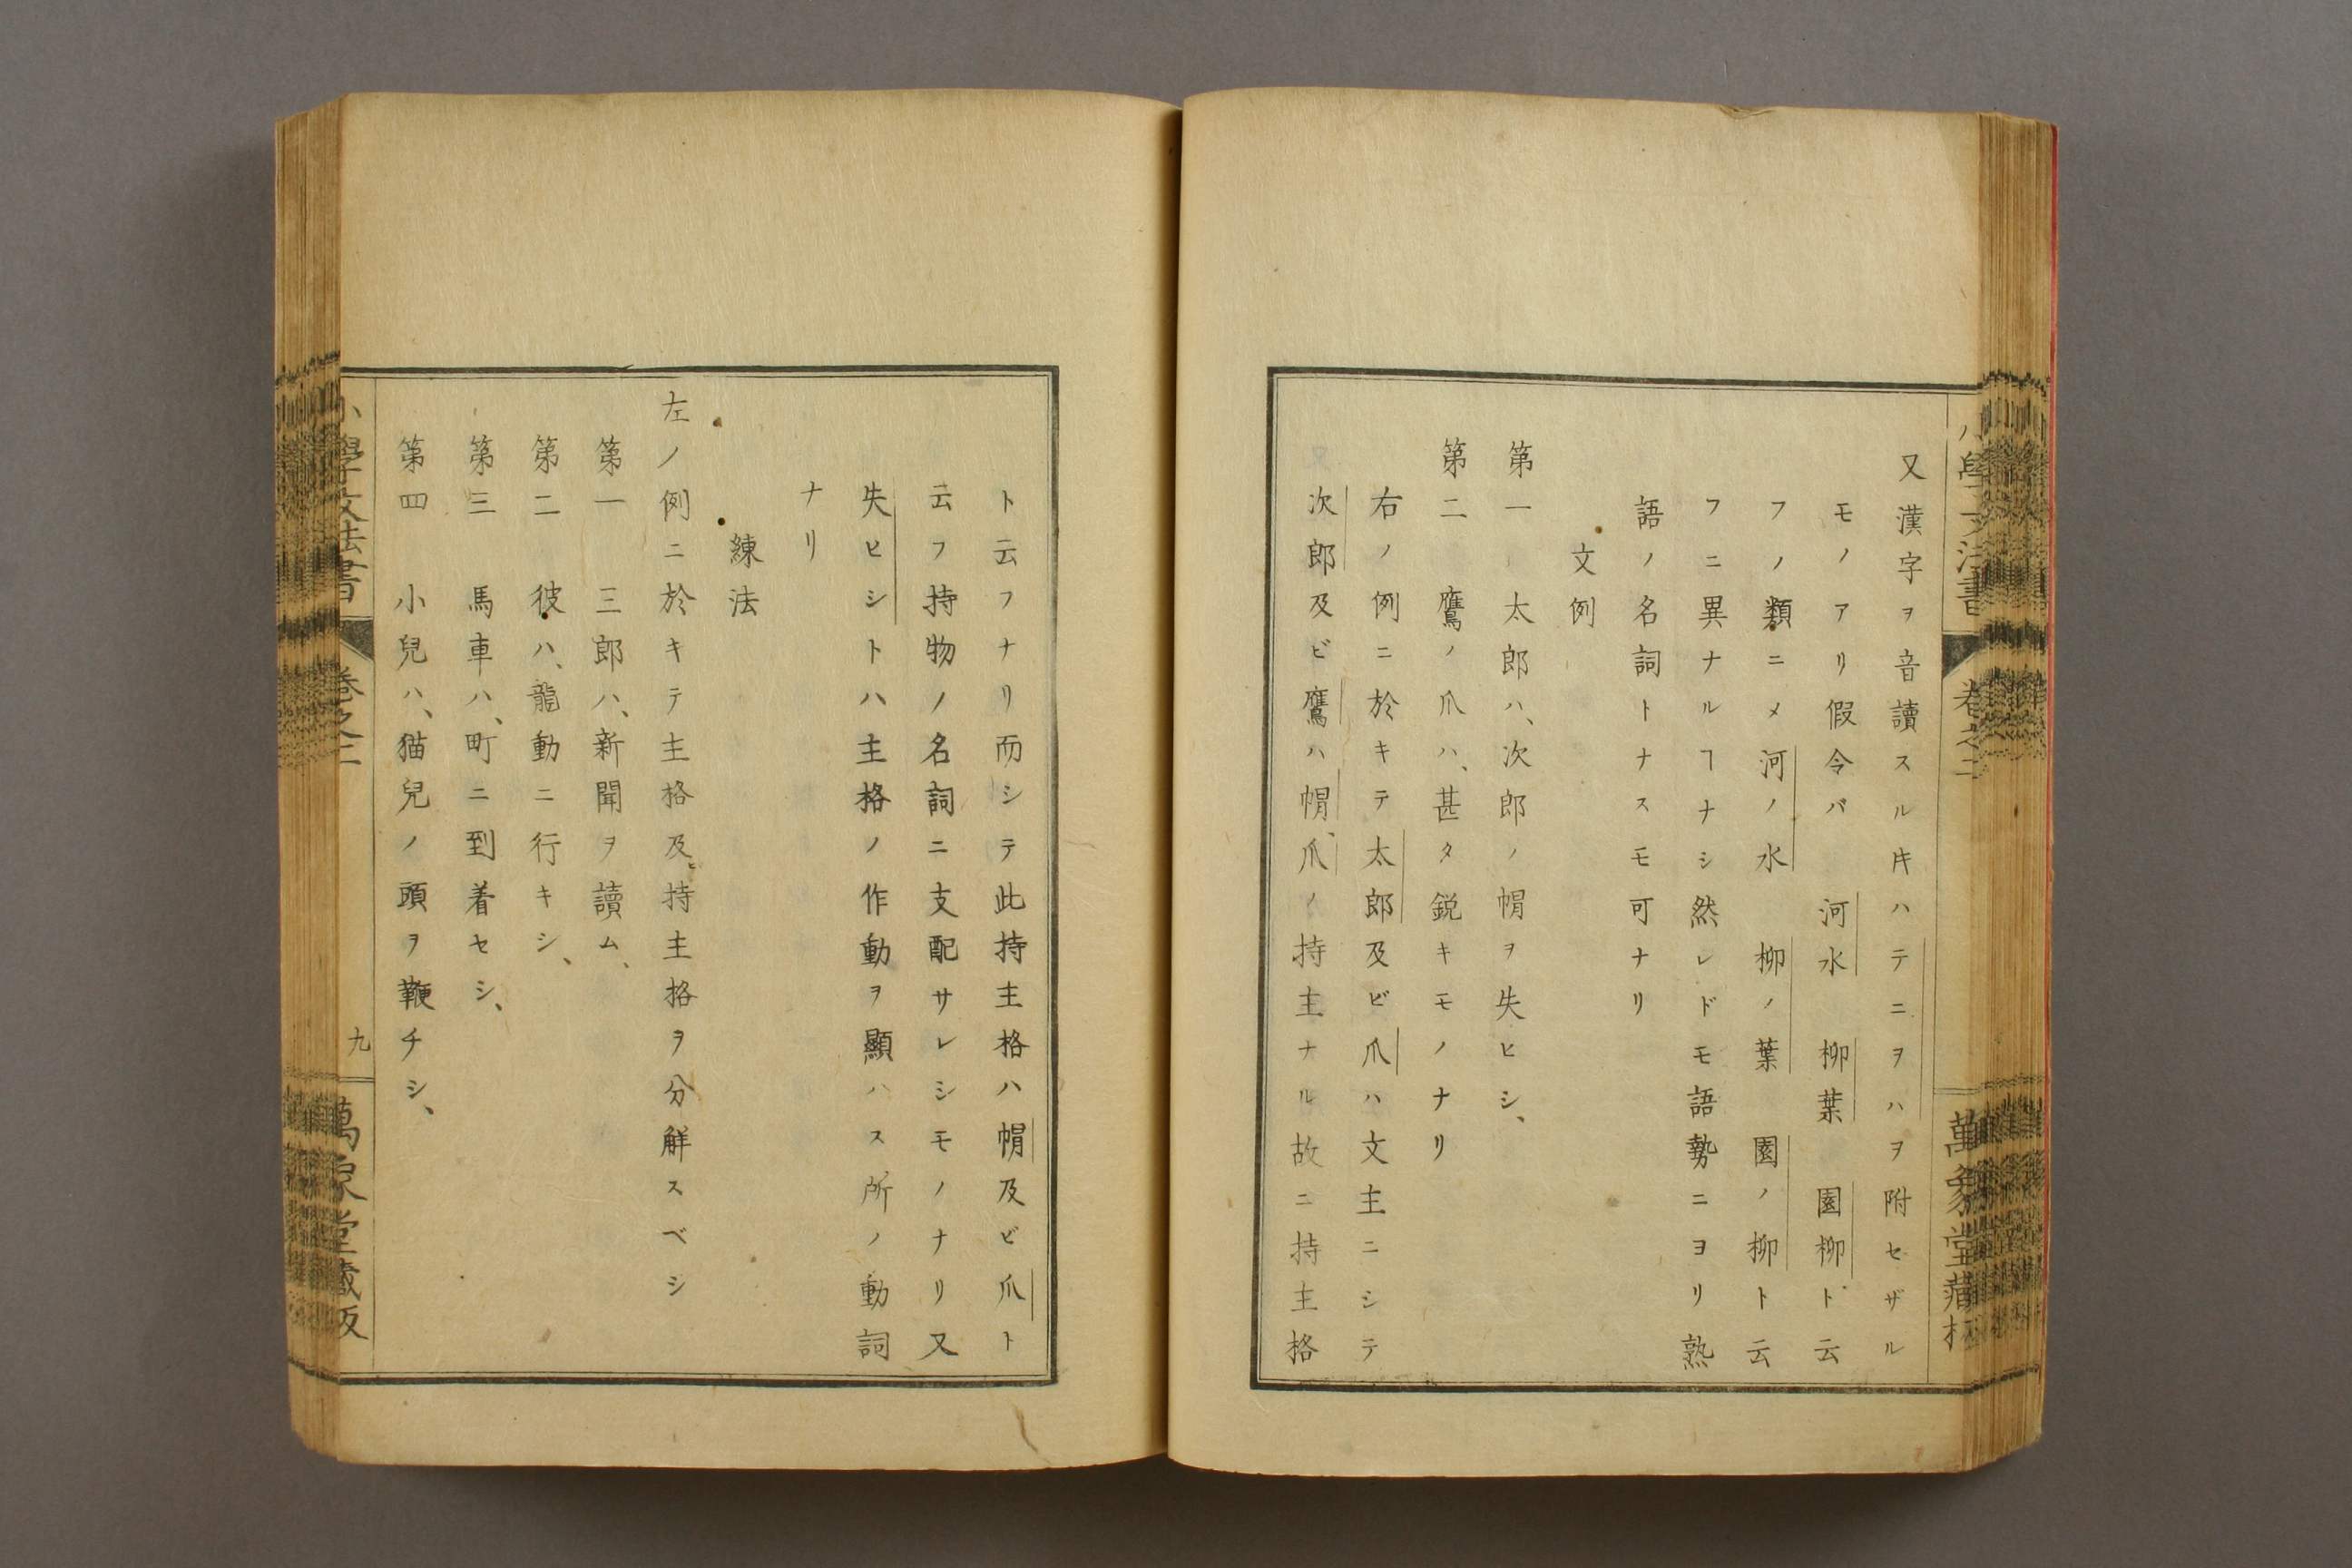 小學文法書 卷之二 萬象堂藏板
又漢字ヲ音讀スルキハテニヲハヲ附セザル
モノアリ假令バ 河水 柳葉 園柳ト云
フノ類ニメ河ノ水 柳ノ葉 園ノ柳ト云
フニ異ナルヿナシ然レドモ語勢ニヨリ熟
語ノ名詞トナスモ可ナリ
文例
第一 太郎ハ、次郎ノ帽ヲ失ヒシ、
第二 鷹ノ爪ハ、甚タ鋭キモノナリ
右ノ例ニ於キテ太郎及ビ爪ハ文主ニシテ
次郎及ビ鷹ハ帽、爪ノ持主ナル故ニ持主格
ト云フナリ而シテ此持主格ハ帽及ビ爪ト
云フ持物ノ名詞ニ支配サレシモノナリ又
失ヒシトハ主格ノ作動ヲ顯ハス所ノ動詞
ナリ
練法
左ノ例ニ於キテ主格及ヒ持主格ヲ分解スベシ
第一 三郎ハ、新聞ヲ讀ム、
第二 彼ハ、龍動ニ行キシ、
第三 馬車ハ、町ニ到着セシ、
第四 小兒ハ、猫兒ノ頭ヲ鞭チシ、
小學文法書 卷之二 九 萬象堂藏板